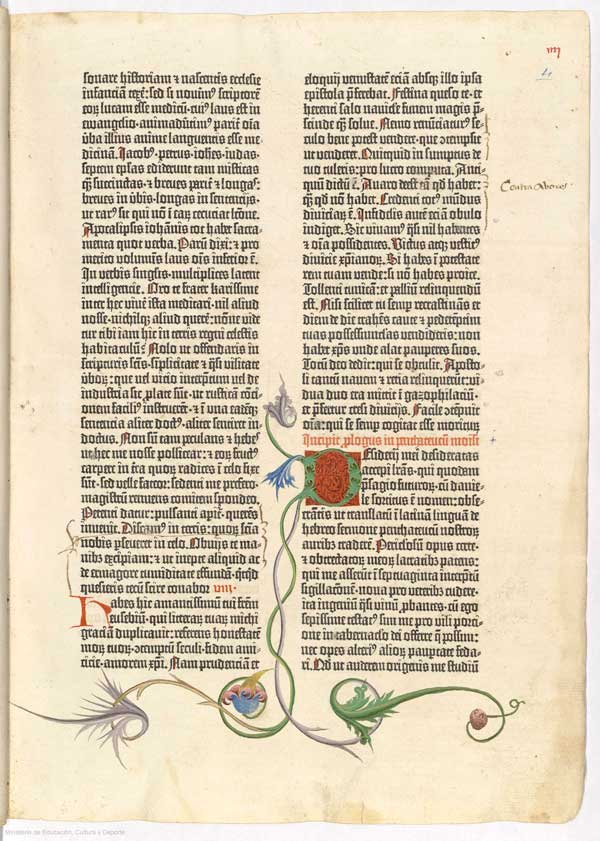 sonare historiam ⁊ nascentis ecclesie
infanciam texe̅: sed si noui̅mus scriptore̅
eoꝝ lucam esse medicu̅· cui⁹ laus est in
ewangelio· animaduertim⁹ parit̅ oi̅a
v̅ba illius anime languentis esse me-
dicina̅. Iacob⁹· petrus· ioh̅es· iudas·
septem ep̅las ediderunt tam misticas
q̅ȝ succinctas· ⁊ breues parit̅ ⁊ longas·
breues in v̅bis· longas in sentencijs·
ut rar⁹ sit qui no̅ i̅ eaꝝ cecuciat lc̅o̅ne.
Apocalipsis ioh̅a̅nis tot habet sacra-
menta quot verba. Paru̅ dixi: ⁊ pro
merito volumi̅s laus oi̅s inferior e̅.
In verbis singul̅is multiplices latent
intelligencie. Oro te frater karissime
inter hec viue̅ ista meditari· nil aliud
nosse· nichilq̅ȝ aliud quere̅: no̅ne vide-
tur tibi ia̅m hic in terris regni celestis
habitaculu̅? Nolo ne offendaris in
scripturis sanctis simplicitate ⁊ q̅si vilitate
v̅boꝝ: que vel vicio interp̅tum vel de
industria sic p̅late su̅t·
facilius instruere̅t· ⁊ i̅ una eade̅q̅ȝ
sentencia alit̅ doct⁹· alit̅ sentiret in-
doctus. Non su̅ tam petulans ⁊ hebes
ut hec me nosse pollicear·
carpere in
su̅t· sed velle fateor: sedenti me prefero·
magistru̅ renuens comitem spondeo.
Petenti datur: pulsanti aperit̅: querens
inuenit. Discam⁹ in terris: quoꝝ sci̅a
nobis p̅seueret in celo. Obuijs te ma-
nibȝ excipiam: ⁊ ut inepte aliquid ac
de ermagore tumiditate effunda̅· q̅cq̅d
quesieris tecu̅ scire conabor VIII.
Habes hic amantissimu̅ tui fr̅em
eusebiu̅· qui litteraꝝ tuaꝝ michi
gracia̅m duplicauit: referens honestate̅
moꝝ tuoꝝ· ⁊temptu̅ seculi· fidem ami-
ticie· amorem xp̅i. Nam prudenciam et
eloquij venustate̅ ecia̅ absq̅ȝ illo ipsa
epistola p̅ferebat. Festina queso te: et
herenti salo nauicule funem magis p̅-
scinde q̅ȝ solue. Nemo renu̅ciatur⁹ se-
culo bene potest vendere· que ⁊tempsit
ut venderet. Quitquid in sumptus de
tuo tuleris: pro lucro computa. Anti-
quu̅ dictu̅ e̅. Auaro deest ta̅ qd̅ habet:
q̅ȝ qd̅ no̅ habet. Credenti tot⁹ mu̅dus
diuiciaꝝ e̅. Infidelis aute̅ ecia̅ obulo
indiget. Sic viuam⁹ q̅si nil habentes
⁊ oi̅a possidentes. Victus atq̅ȝ vestit⁹
diuicie xp̅ianoꝝ. Si habes i̅ potestate
rem tuam vende: si no̅ habes proice.
Tollenti tunica̅: et palliu̅ relinquendu̅
est. Nisi scilicet tu semp̅ recrastina̅s et
diem de die trahe̅s caute ⁊ pedetemptim
tuas possessiu̅culas vendideris: non
habet xp̅us unde alat pauperes suos.
Totu̅ deo dedit: qui se obtulit. Aposto-
li tantu̅ nauem ⁊ retia relinqueru̅t: vi-
dua duo era mittit i̅ gazophilaciu̅·
et p̅fertur cresi diuicijs. Facile ⁊te̅pnit
oi̅a: qui se semp̅ cogitat esse moritur⁹
Incipit p̅logus in pentateucu̅ moisi·
Desiderij mei desideratas
accepi l̅ras· qui quodam
p̅sagio futuroꝝ· cu̅ danie-
le sortitus e̅ nomen: obse-
cra̅tis ut translatu̅ i̅ latina̅ lingua̅ de
hebreo sermone pentateucu̅ nostroꝝ
aurib̅ȝ traderem. Periculosu̅ opus certe·
⁊ obtrectatoꝝ meoꝝ latratib̅ȝ patens:
qui me asseru̅t i̅ septuaginta interp̅tu̅
sigillatione̅· noua pro veterib̅ȝ cudere·
ita ingeniu̅ q̅si vinu̅ p̅bantes: cu̅ ego
sepissime testat⁹ sim me pro virili porti-
one in tabernaclo dei offerre q̅ȝ possim:
nec opes alteri⁹ alioꝝ paupertate feda-
ri. Qd̅ ut auderem origenis me studiu̅